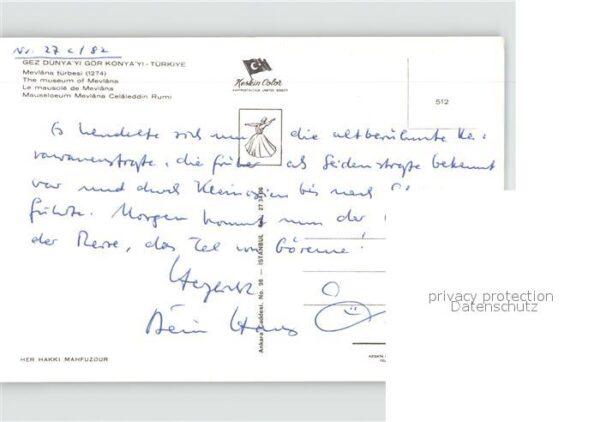 Nr. 27 c/82
GEZ DÜNYA'YI GÖR KONYA'YI - TÜRKIYE
Mevlâna türbesi (1274)
The museum of Mevlâna
Le mausolé de Mevlâna
Mausoleum Mevlâna Celâleddin Rumi
Keskin Color
512
Es handelte sich um die altberühmte Ka-
rawanenstraße, die früher als Seidenstraße bekannt
war und durch Kleinasien bis nach
führte. Morgen kommt nun der
der Reise, das Tal von Göreme!
Herzlichst
Dein Hans
Ankara Caddesi, No. 98 - ISTANBUL
HER HAKKI MAHFUZDUR
KESKIN
privacy protection
Datenschutz